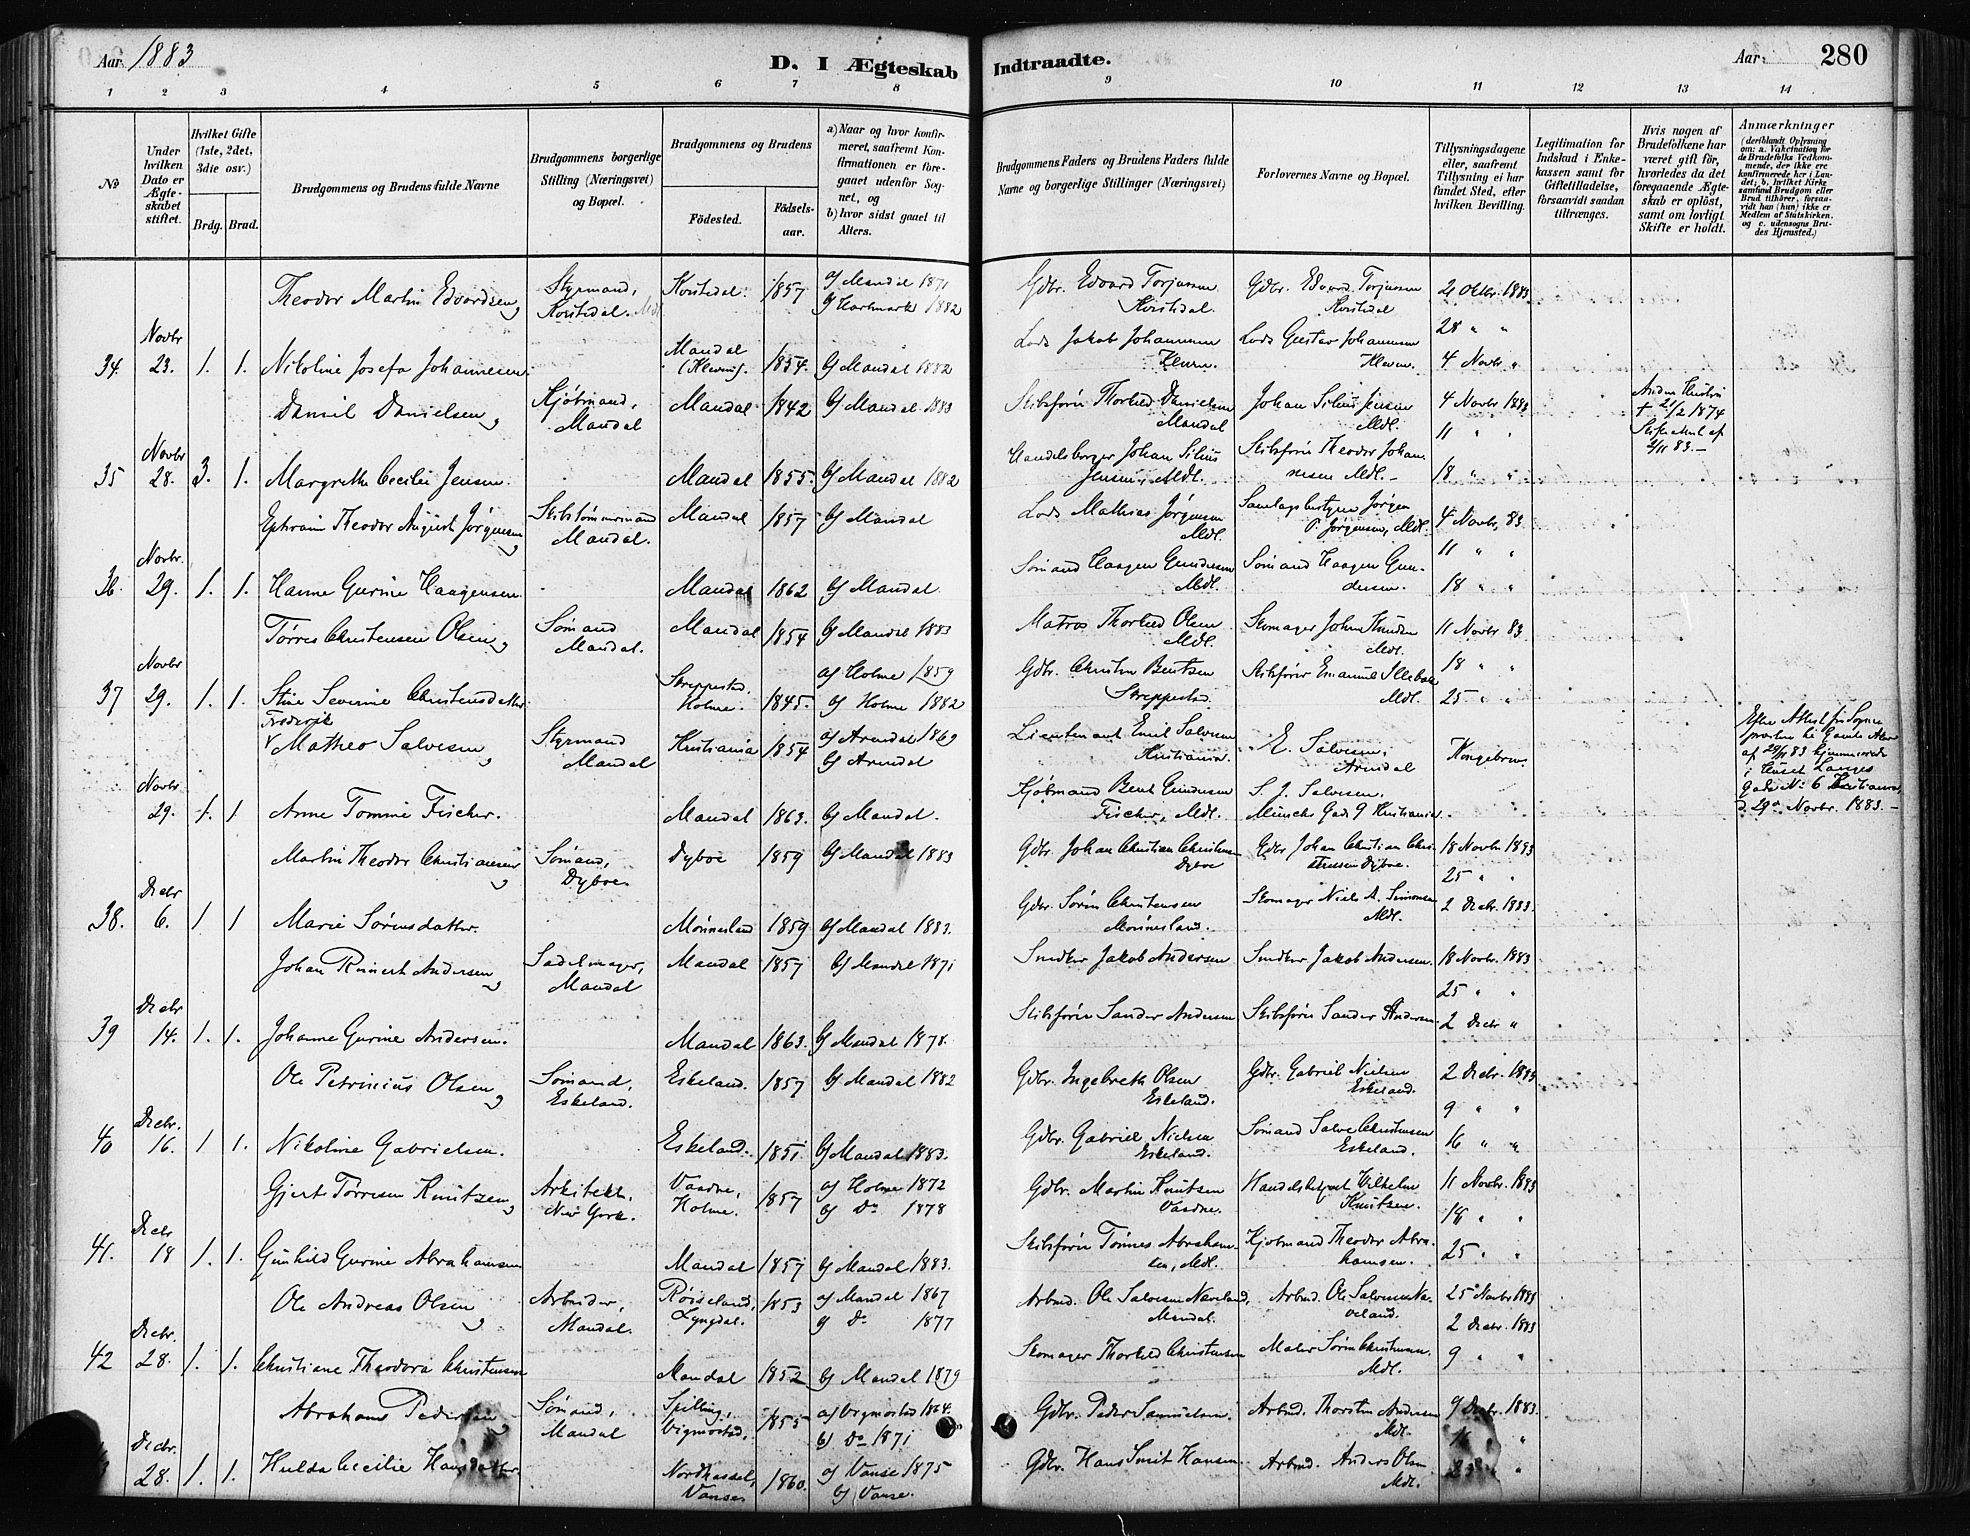 Aar 1883
D. I Ægteskab
Indtraadte.
Aar:
280
1 2 3 4 5 6 7 8 9 10 11 12 13 14
No
Under hvilken Dato er Ægteskabet stiftet.
Hvilket Gifte (1ste, 2det, 3die osv.)
Brdg. Brud.
Brudgommens og Brudens fulde Navne
Brudgommens borgerlige Stilling (Næringsvei) og Bopæl.
Brudgommens og Brudens
Födested.
Födsels-aar.
a) Naar og hvor konfirmeret, saafremt Konfirmationen er foregaaet udenfor Sognet, og
b) hvor sidst gaaet til Alters.
Brudgommens Faders og Brudens Faders fulde Navne og borgerlige Stillinger (Næringsvei)
Forlovernes Navne og Bopæl.
Tillysningsdagene eller, saafremt Tillysning ei har fundet Sted, efter hvilken Bevilling.
Legitimation for Indskud i Enkekassen samt for Giftetilladelse, forsaavidt saadan tiltrænges.
Hvis nogen af Brudefolkene har været gift för, hvorledes da det foregaaende Ægteskab er oplöst, samt om lovligt Skifte er holdt.
Anmærkninger
(deriblandt Oplysning om: a. Vakcination for de Brudefolks Vedkommende, der ikke ere konfirmerede her i Landet; b. hvilket Kirkesamfund Brudgom eller Brud tilhörer, forsaavidt han (hun) ikke er Medlem af Statskirken, og c. udensogns Brudes Hjemsted.)
Theodor Martin Edvardsen, Styrmand, 1857 a) Mandal 1871
b) Hartmark 1882
Gdbr. Edvard Torjussen Gdbr. Edvard Torjussen 21 Oktbr. 1883
28 " "
34. Novbr 23. 1. 1. Nikoline Josefa Johannesen Mandal (Kleven). 1854. b) Mandal 1882
Lods Jakob Johannesen Kleven. Lods Gustav Johannesen Kleven. 4 Novbr "
Daniel Danielsen, Kjøbmand, Mandal Mandal 1842 b) Mandal 1883
Skibsfører Thorkild Danielsen Mandal Johan Silius Jensen Mdl. 4 Novbr 1883
11 " "
Anden Hustru † 21/2 1874
Skifteattest af 2/11 83.-
35 Novbr 28. 3. 1. Margrethe Cecilie Jensen. Mandal 1855. b) Mandal 1882
Handelsborger Johan Silius Jensen, Mdl. Skibsfører Theodor Johannesen Mdl. 18 " "
Ephraim Theodor August Jørgensen, Skibstømmermand Mandal. Mandal 1857 b) Mandal
Lods Mathias Jørgensen Mdl. Samlagsbestyrer Jørgen P. Jørgensen, Mdl. 4 Novbr. 83
11 " "
36. Novbr. 29. 1. 1. Hanne Gurine Haagensen. Mandal 1862 b) Mandal.
Sømand Haagen Gundersen Mdl. Sømand Haagen Gundersen. 18 " "
Tørres Christensen Olsen, Sømand Mandal. Mandal 1854 b) Mandal 1883
Matros Thorkild Olsen Mdl. Skomager Johan Knudsen Mdl. 11 Novbr 83
18 " "
37 Novbr 29. 1. 1. Stine Severine Christensdatter Skeppestad. Holme. 1845. a) Holme 1859
b) Holme 1882
Gdbr. Christen Bentsen Skeppestad. Skibsfører Emanuel Mdl. 25 " "
Frederik Matheo Salvesen, Styrmand Mandal Kristiania 1854 a) Arendal 1869
b) Arendal
Lieutenant Emil Salvesen Kristiania. E. Salvesen. Arendal Kongebrev.
Efter Attest fra Sognepræsten til Gamle Aker af 29/11 83 hjemmeviede i Huset Langes Gade No 6 Kristiania, d. 29de Novbr. 1883.-
Novbr 29. 1. 1 Anne Tomine Fischer. Mandal 1863. b) Mandal.
Kjøbmand Bent Gundersen Fischer, Mdl. S. J. Salvesen. Munchs Gade 9 Kristiania.
Martin Theodor Christiansen, Sømand, Dyboe. Dyboe 1859 b) Mandal 1883
Gdbr. Johan Christian Christensen Dyboe Gdbr Johan Christian Christensen Dyboe. 18 Novbr 1883
25 " "
38. Decbr 6. 1 1 Marie Sørensdatter. Mønnesland 1859 b) Mandal 1883.
Gdbr. Søren Christensen Mønnesland. Skomager Niels A. Simonsen Mdl. 2 Decbr. 1883.
Johan Reinert Andersen, Sadelmager, Mandal Mandal 1857 b) Mandal 1871
Snedker Jakob Andersen Snedker Jakob Andersen. 18 Novbr. 1883
25 " "
39 Decbr 14. 1. 1. Johanne Gurine Andersen. Mandal 1863. b) Mandal 1878.
Skibsfører Sander Andersen Skibsfører Sander Andersen. 2 Decbr "
Ole Petrinius Olsen, Sømand, Eskeland. Eskeland. 1857 b) Mandal 1882
Gdbr. Ingebreth Olsen Eskeland. Gdbr. Gabriel Nielsen Eskeland. 2 Decbr. 1883
9 " "
40 Decbr. 16. 1 1. Nikoline Gabrielsen. Eskeland. 1851. b) Mandal 1883.
Gdbr. Gabriel Nielsen Eskeland. Sømand Salve Christensen Eskeland. 16 " "
Gjert Tørresen Knutzen, Arkitekt, New York. Vaadne, Holme. 1857 a) Holme 1872
b) Do 1878
Gdbr. Martin Knutsen Vaadne. Vilhelm Knutsen. 11 Novbr. 1883
18 " "
41. Decbr 18 1. 1. Gunhild Gurine Abrahamsen Mandal 1857 b) Mandal 1883.
Skibsfører Tønnes Abrahamsen, Mdl. Kjøbmand Theodor Abrahamsen. 25 " "
Ole Andreas Olsen, Arbeider, Mandal. Røiseland, Lyngdal. 1853 a) Mandal 1867
b) Do 1877
Arbeid. Ole Salvesen Naveland, Mandal. Arbeid. Ole Salvesen Naveland. 25 Novbr 1883
2 Decbr. 1883
42 Decbr. 28. 1. 1. Christiane Theodora Christensen Mandal 1852 b) Mandal 1879
Skomager Thorkild Christensen Maler Søren Christensen. Mdl. 9 " "
Abraham Pedersen, Sømand, Mandal Spilling, Vigmostad. 1855 a) Vigmostad 1864.
b) Do 1871
Gdbr. Peder Samuelsen. Arbeid. Thorsten Andersen Mdl. 9 Decbr. 1883.
16 " "
Decbr. 28. 1. 1. Hulda Cecilie Hansdatter. Nordhassel, Vanse. 1860. a) Vanse 1875
b) Vanse.
Gdbr. Hans Smit Hansen. Arbeid. Anders Olsen Mdl. 23 " "